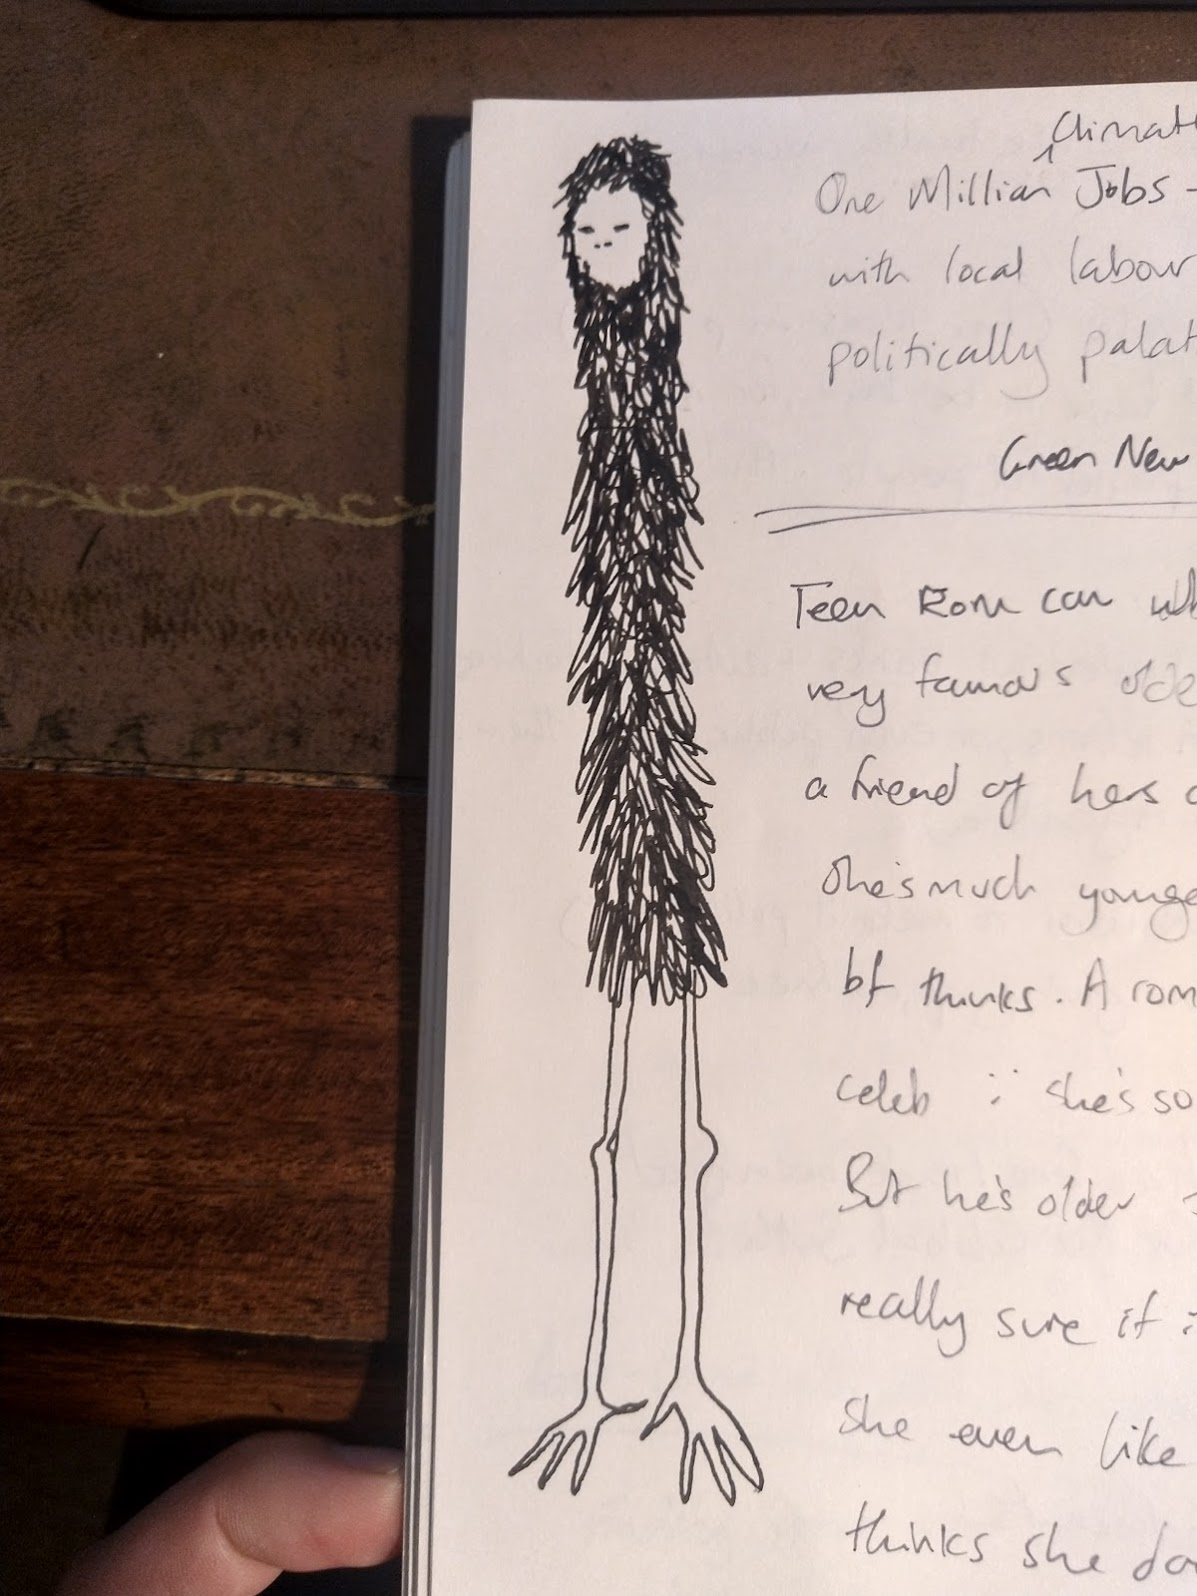 Climat
One Million Jobs -
with local labour
politically palat
Green New
Teen Rom can
very famous olde
a friend of hers
she's much younge
bf thinks. A rom
celeb : she's so
But he's older
really sure if
she even like
thinks she do